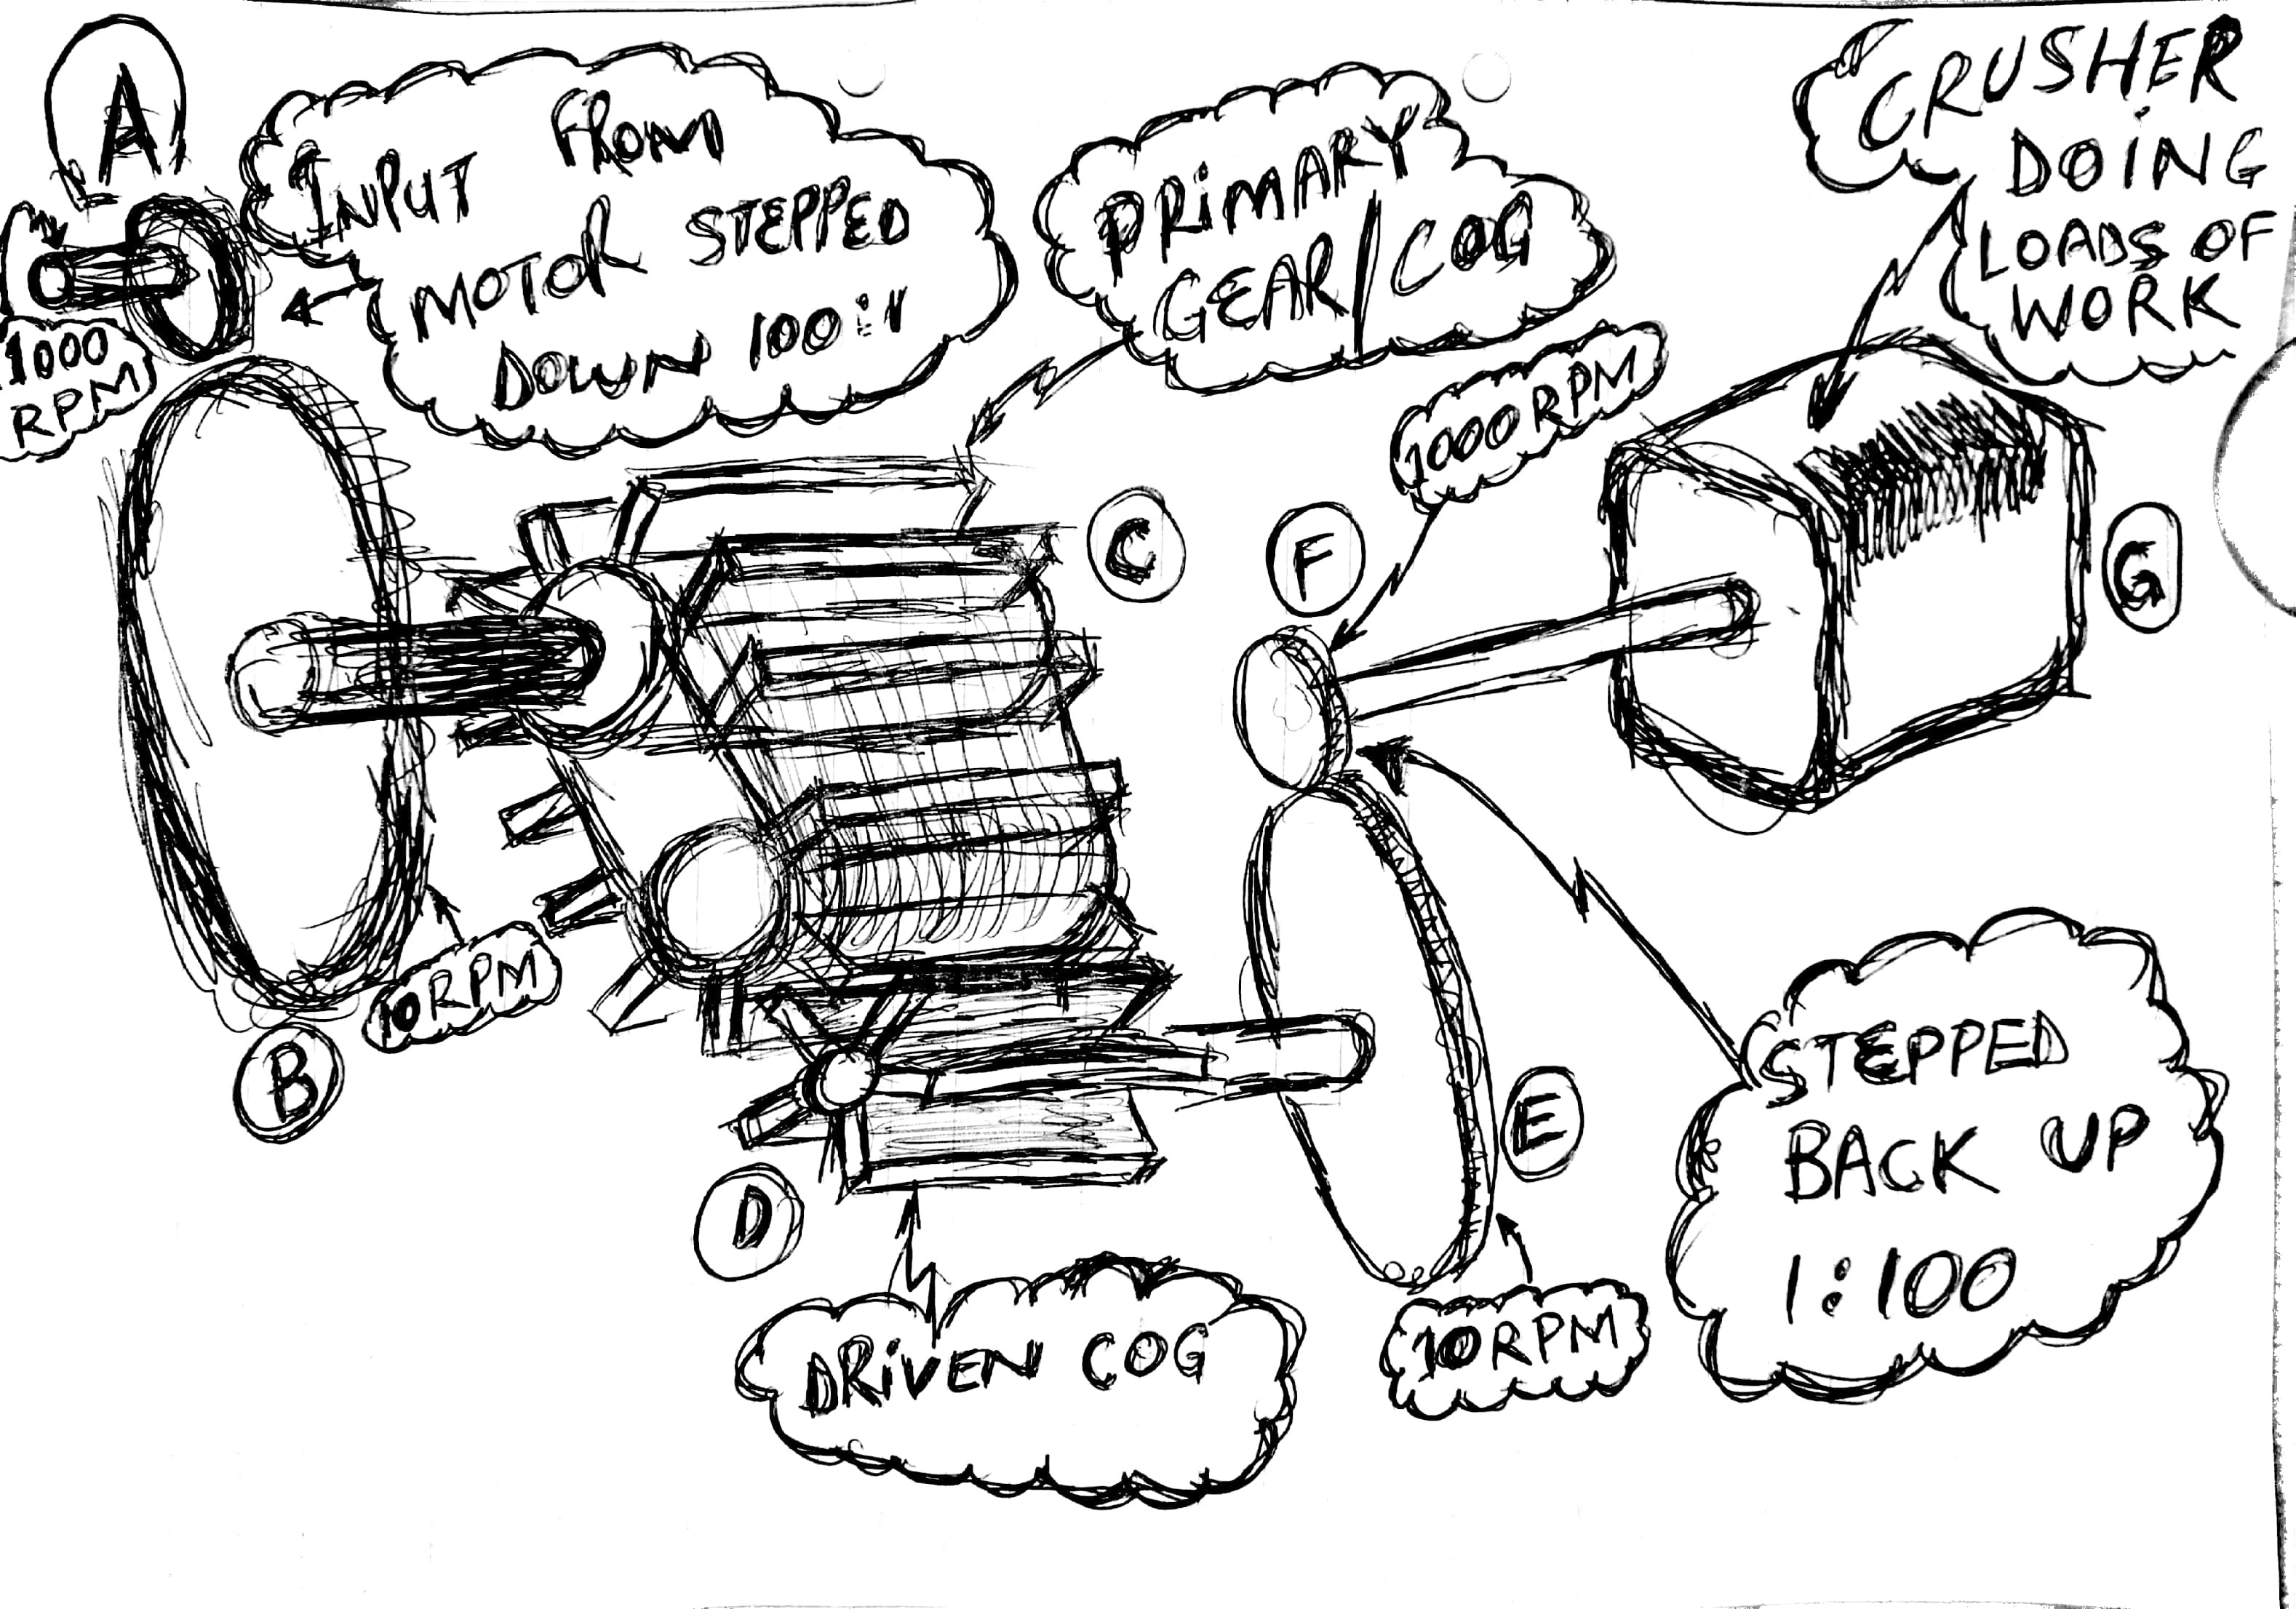 A
INPUT FROM
MOTOR STEPPED
DOWN 100:1
1000
RPM
PRIMARY
GEAR/COG
CRUSHER
DOING
LOADS OF
WORK
1000RPM
C
F
G
10RPM
B
STEPPED
BACK UP
1:100
E
D
10RPM
DRIVEN COG